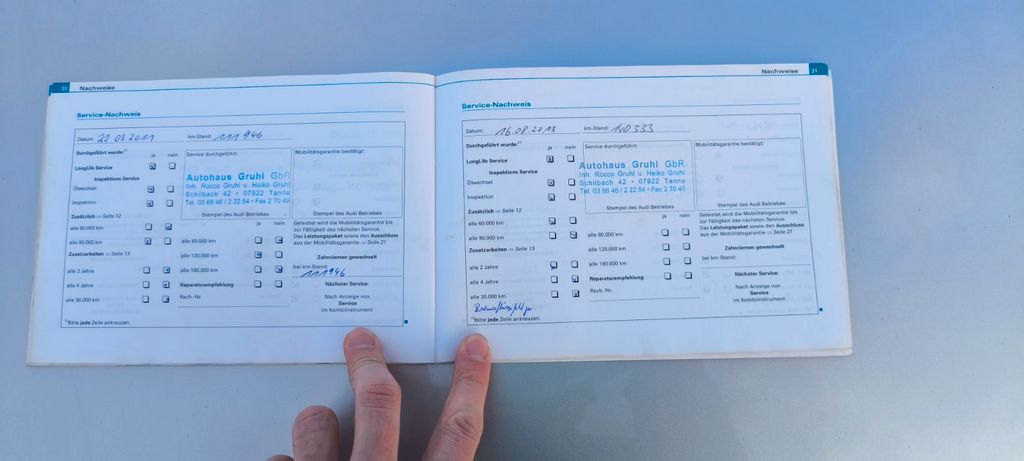 30 Nachweise
Service-Nachweis
Datum: 22 03 2011 km-Stand: 111 946
Durchgeführt wurde:¹⁾ ja nein
LongLife Service
Inspektions Service
Ölwechsel
Inspektion
Zusätzlich ⇒ Seite 12
alle 60.000 km
alle 90.000 km
Zusatzarbeiten ⇒ Seite 13
alle 2 Jahre
alle 4 Jahre
alle 30.000 km
Service durchgeführt:
Autohaus Gruhl GbR
Inh. Rocco Gruhl u. Heiko Gruhl
Schilbach 42 • 07922 Tanna
Tel. 03 66 46 / 2 22 54 • Fax 2 70 49
Stempel des Audi Betriebes
ja nein
alle 60.000 km
alle 120.000 km
alle 180.000 km
Reparaturempfehlung
Rech.-Nr.
Mobilitätsgarantie bestätigt:
Stempel des Audi Betriebes
Geleistet wird die Mobilitätsgarantie bis
zur Fälligkeit des nächsten Service.
Das Leistungspaket sowie den Ausschluss
aus der Mobilitätsgarantie ⇒ Seite 21
Zahnriemen gewechselt
bei km-Stand:
111946
Nächster Service:
Nach Anzeige von
Service
im Kombiinstrument
¹⁾ Bitte jede Zeile ankreuzen.
Nachweise 31
Service-Nachweis
Datum: 16.08.2013 km-Stand: 140 333
Durchgeführt wurde:¹⁾ ja nein
LongLife Service
Inspektions Service
Ölwechsel
Inspektion
Zusätzlich ⇒ Seite 12
alle 60.000 km
alle 90.000 km
Zusatzarbeiten ⇒ Seite 13
alle 2 Jahre
alle 4 Jahre
alle 30.000 km
Service durchgeführt:
Autohaus Gruhl GbR
Inh. Rocco Gruhl u. Heiko Gruhl
Schilbach 42 • 07922 Tanna
Tel. 03 66 46 / 2 22 54 • Fax 2 70 49
Stempel des Audi Betriebes
ja nein
alle 60.000 km
alle 120.000 km
alle 180.000 km
Reparaturempfehlung
Rech.-Nr.
Mobilitätsgarantie bestätigt:
Stempel des Audi Betriebes
Geleistet wird die Mobilitätsgarantie bis
zur Fälligkeit des nächsten Service.
Das Leistungspaket sowie den Ausschluss
aus der Mobilitätsgarantie ⇒ Seite 21
Zahnriemen gewechselt
bei km-Stand:
Nächster Service:
Nach Anzeige von
Service
im Kombiinstrument
¹⁾ Bitte jede Zeile ankreuzen.